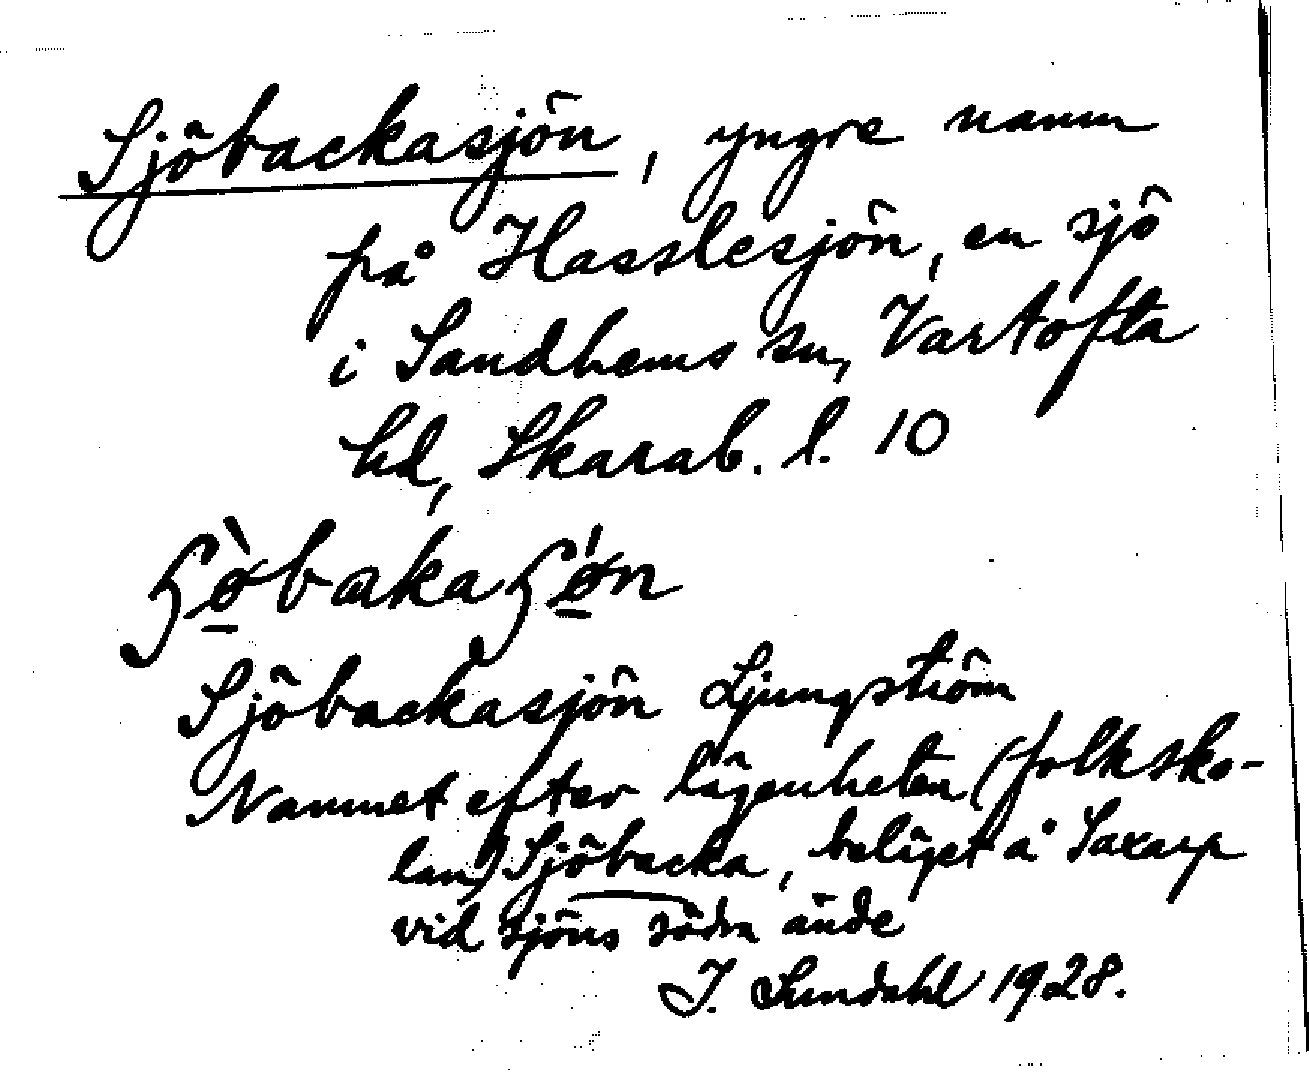 Sjöbackasjön, yngre namn
på Hasslesjön, en sjö
i Sandhems sn, Vartofta
hd, Skarab. l. 10
Sjöbackasjön Ljungström
Namnet efter lägenheten (folksko-
lan) Sjöbacka, beläget å Saxarp
vid sjöns södra ände
J. Sundahl 1928.